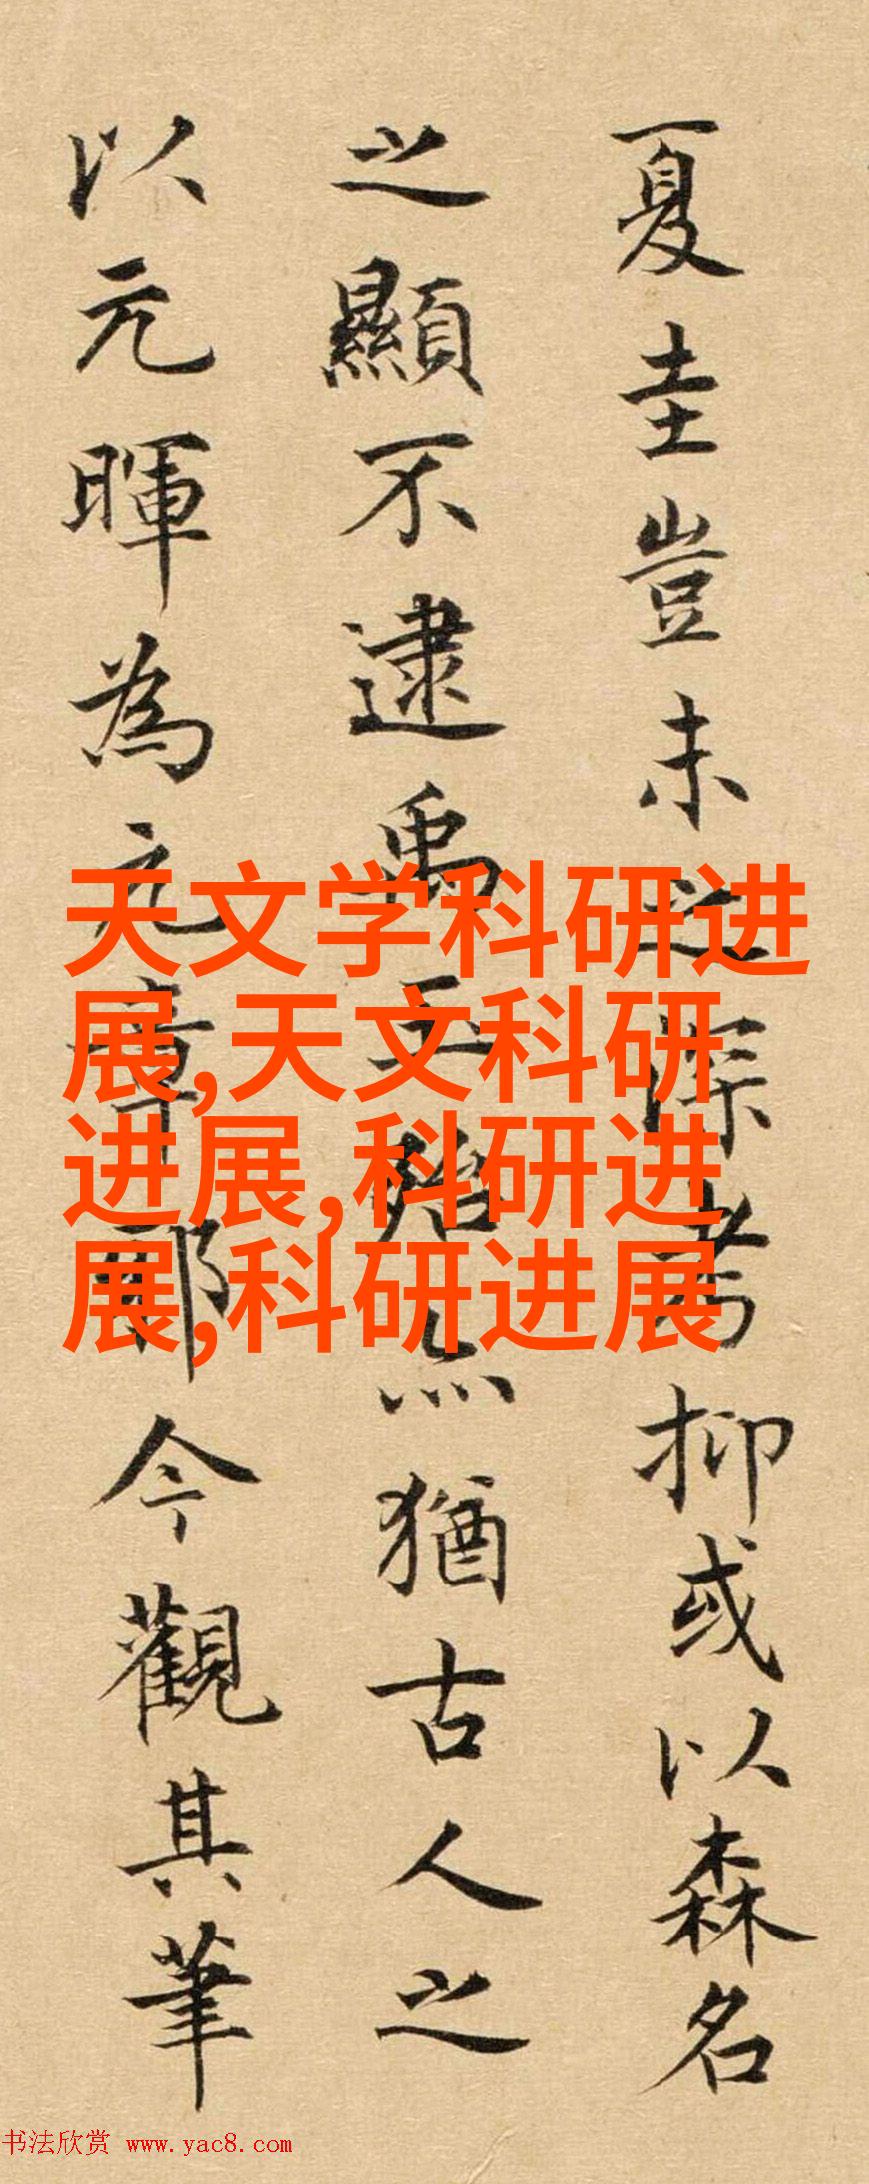 夏圭豈未之深考抑或以森名
之顯不逮禹玉殆亦猶古人之
以元暉為元章耶今觀其筆
天文学科研进
展,天文科研
进展,科研进
展,科研进展
书法欣赏 www.yac8.com